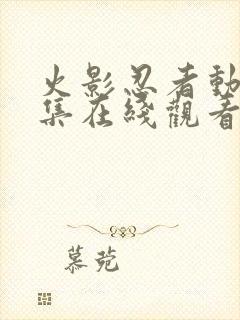 火影忍者動
集在綫觀看
慕菀